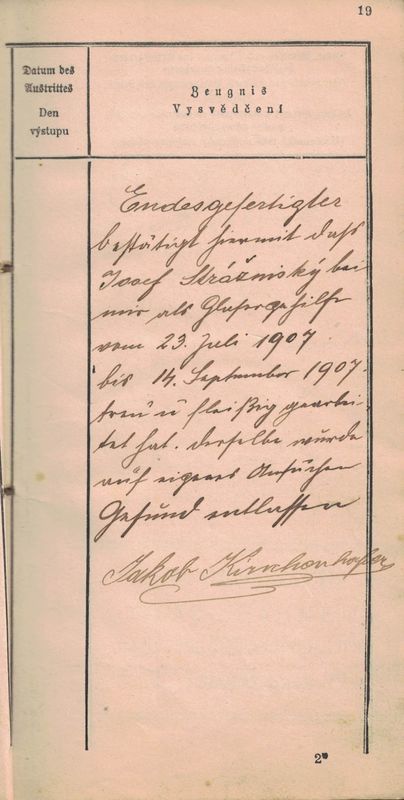 19
Datum des
Austrittes
Den
výstupu
Zeugnis
Vysvědčení
Endesgefertigter
bestätigt hiermit dass
Josef Strážniský bei
mir als Glasergehilfe
vom 23. Juli 1907
bis 14. September 1907.
treu u fleißig gearbei-
tet hat. derselbe wurde
auf eigenes Ansuchen
Gesund entlassen
Jakob Kirschenhofer
2*